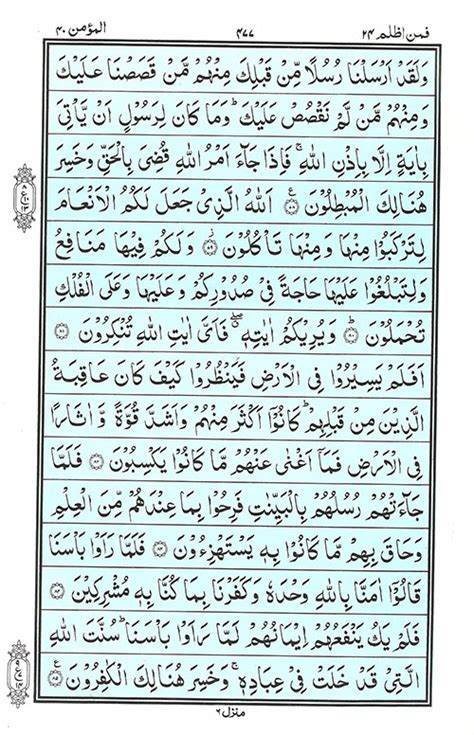 فمن اظلم ٢٤ ٤٧٧ المؤمن ٤٠
وَلَقَدْ اَرْسَلْنَا رُسُلًا مِّنْ قَبْلِكَ مِنْهُمْ مَّنْ قَصَصْنَا عَلَيْكَ
وَمِنْهُمْ مَّنْ لَّمْ نَقْصُصْ عَلَيْكَ ؕ وَمَا كَانَ لِرَسُوْلٍ اَنْ يَّاْتِيَ
بِاٰيَةٍ اِلَّا بِاِذْنِ اللّٰهِ ۚ فَاِذَا جَآءَ اَمْرُ اللّٰهِ قُضِيَ بِالْحَقِّ وَخَسِرَ
هُنَالِكَ الْمُبْطِلُوْنَ ۧ۝٧٨ اَللّٰهُ الَّذِيْ جَعَلَ لَكُمُ الْاَنْعَامَ
لِتَرْكَبُوْا مِنْهَا وَمِنْهَا تَاْكُلُوْنَ ۝٧٩ وَلَكُمْ فِيْهَا مَنَافِعُ
وَلِتَبْلُغُوْا عَلَيْهَا حَاجَةً فِيْ صُدُوْرِكُمْ وَعَلَيْهَا وَعَلَى الْفُلْكِ
تُحْمَلُوْنَ ؕ۝٨٠ وَيُرِيْكُمْ اٰيٰتِهٖ ۖ فَاَيَّ اٰيٰتِ اللّٰهِ تُنْكِرُوْنَ ۝٨١
اَفَلَمْ يَسِيْرُوْا فِي الْاَرْضِ فَيَنْظُرُوْا كَيْفَ كَانَ عَاقِبَةُ
الَّذِيْنَ مِنْ قَبْلِهِمْ ؕ كَانُوْٓا اَكْثَرَ مِنْهُمْ وَاَشَدَّ قُوَّةً وَّاٰثَارًا
فِي الْاَرْضِ فَمَآ اَغْنٰى عَنْهُمْ مَّا كَانُوْا يَكْسِبُوْنَ ۝٨٢ فَلَمَّا
جَآءَتْهُمْ رُسُلُهُمْ بِالْبَيِّنٰتِ فَرِحُوْا بِمَا عِنْدَهُمْ مِّنَ الْعِلْمِ
وَحَاقَ بِهِمْ مَّا كَانُوْا بِهٖ يَسْتَهْزِءُوْنَ ۝٨٣ فَلَمَّا رَاَوْا بَاْسَنَا
قَالُوْٓا اٰمَنَّا بِاللّٰهِ وَحْدَهٗ وَكَفَرْنَا بِمَا كُنَّا بِهٖ مُشْرِكِيْنَ ۝٨٤
فَلَمْ يَكُ يَنْفَعُهُمْ اِيْمَانُهُمْ لَمَّا رَاَوْا بَاْسَنَا ؕ سُنَّتَ اللّٰهِ
الَّتِيْ قَدْ خَلَتْ فِيْ عِبَادِهٖ ۚ وَخَسِرَ هُنَالِكَ الْكٰفِرُوْنَ ۧ۝٨٥
منزل ٦